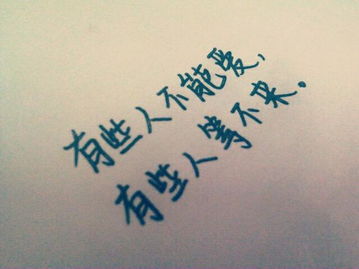 有些人不能爱，
有些人等不来。